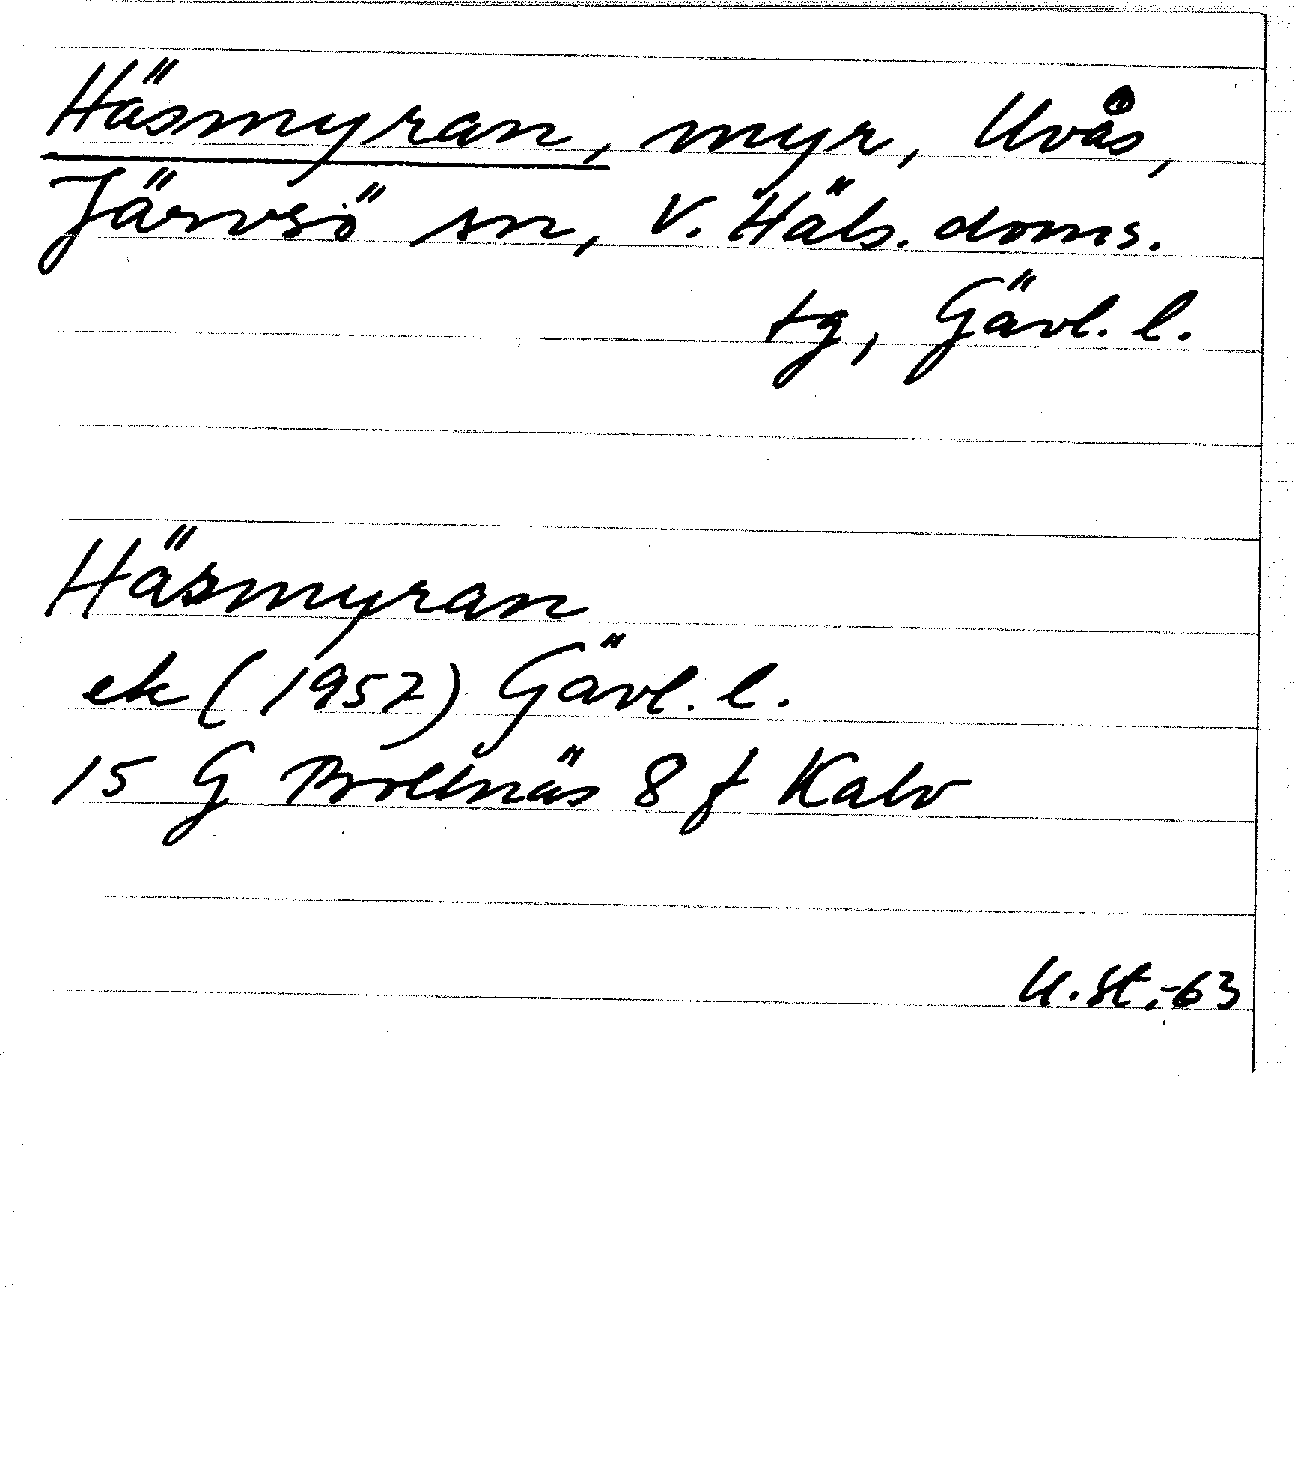 Häsmyran, myr, Uvås,
Järvsö sn, V. Häls. doms.
tg, Gävl. l.
Häsmyran
ek (1957) Gävl. l.
15 G Bollnäs 8 f Kalv
U. St. -63